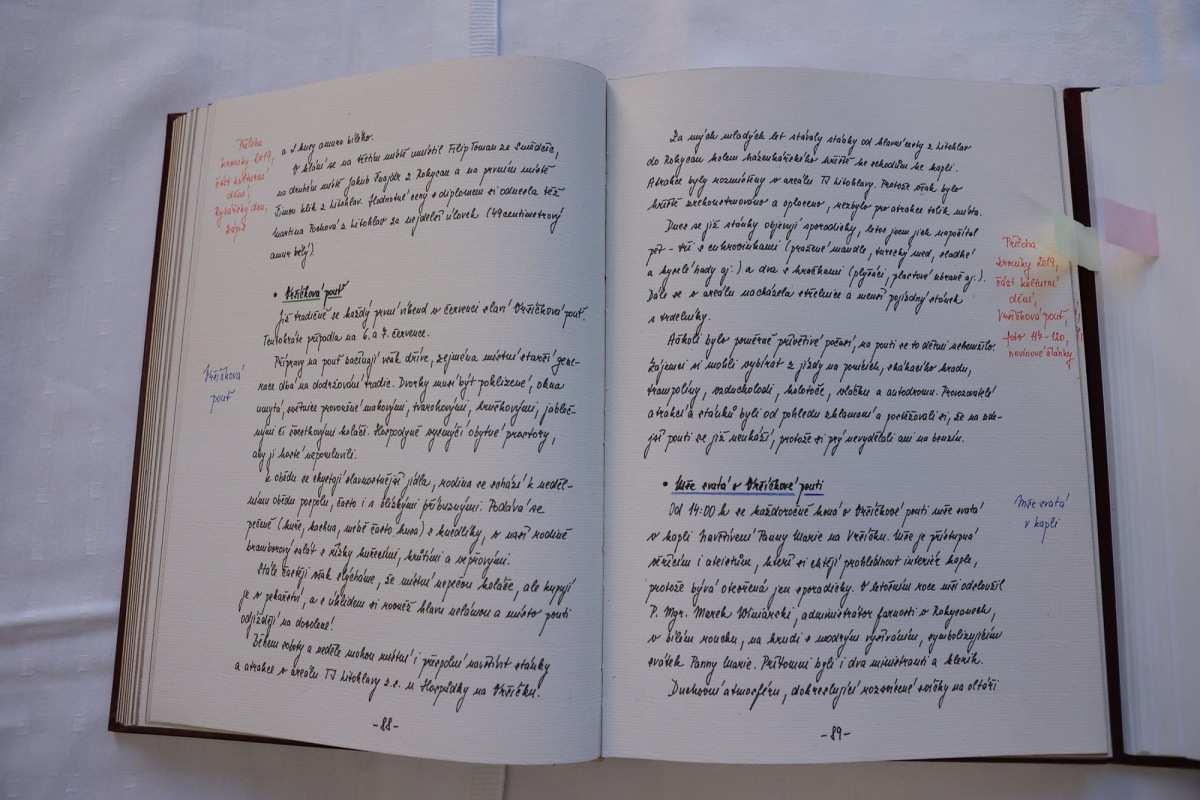 Příloha
kroniky 2019,
část kulturní
dění,
Rybářský den,
zápis
a 2 kusy amura bílého.
V klání se na třetím místě umístil Filip Toman ze Smědčic,
na druhém místě Jakub Fajgl z Rokycan a na prvním místě
Šimon Klik z Litohlav. Hodnotné ceny s diplomem si odnesla též
Martina Pochová z Litohlav za nejdelší úlovek (49centimetrový
amur bílý).
• Vršíčková pouť
Již tradičně se každý první víkend v červenci slaví Vršíčková pouť.
Tentokráte připadla na 6. a 7. července.
Vršíčková
pouť
Přípravy na pouť začínají však dříve, zejména místní starší gene-
race dbá na dodržování tradic. Dvorky musí být poklizené, okna
umytá, světnice provoněné makovými, tvarohovými, hruškovými, jableč-
nými či švestkovými koláči. Hospodyně vysmýčí obytné prostory,
aby ji hosté nepomluvili.
K obědu se chystají slavnostnější jídla, rodina se schází k neděl-
nímu obědu pospolu, často i s blízkými příbuznými. Podává se
pečeně (kuře, kachna, méně často husa) s knedlíky, v naší rodině
bramborový salát s řízky kuřecími, krůtími a vepřovými.
Stále častěji však slýcháme, že místní nepečou koláče, ale kupují
je v pekařství, a s úklidem si rovněž hlavu nelámou a místo pouti
odjíždějí na dovolené!
Během soboty a neděle mohou místní i přespolní navštívit stánky
a atrakce v areálu TJ Litohlavy z.s. u Hospůdky na Vršíčku.
-88-
Za mých mladých let stávaly stánky od hlavní cesty z Litohlav
do Rokycan kolem házenkářského hřiště ke schodům ke kapli.
Atrakce byly rozmístěny v areálu TJ Litohlavy. Protože však bylo
hřiště zrekonstruováno a oploceno, nezbylo pro atrakce tolik místa.
Dnes se již stánky objevují sporadicky, letos jsem jich napočítal
pět - tři s cukrovinkami (pražené mandle, turecký med, sladké
a kyselé hady aj.) a dva s hračkami (plyšáci, plastové zbraně aj.).
Dále se v areálu nacházela střelnice a menší pojízdný stánek
s trdelníky.
Příloha
kroniky 2019,
část kulturní
dění,
Vršíčková pouť,
foto 114-120,
novinové články
Ačkoli bylo poměrně přívětivé počasí, na pouti se to dětmi nehemžilo.
Zájemci si mohli vybírat z jízdy na ponících, skákacího hradu,
trampolíny, vzducholodi, kolotoče, vláčku a autodromu. Provozovatelé
atrakcí a stánků byli od pohledu zklamaní a postěžovali si, že na zde-
jší pouti se již neukáží, protože si prý nevydělali ani na benzín.
• Mše svatá o Vršíčkové pouti
Od 14:00 h se každoročně koná o Vršíčkové pouti mše svatá
v kapli Navštívení Panny Marie na Vršíčku. Mše je přístupná
věřícím i ateistům, kteří si chtějí prohlédnout interiér kaple,
protože bývá otevřená jen sporadicky. V letošním roce mši odsloužil
P. Mgr. Marek Winiarski, administrátor farnosti v Rokycanech,
v bílém rouchu, na hrudi s modrým vyšíváním, symbolizujícím
svátek Panny Marie. Přítomni byli i dva ministranti a klerik.
Duchovní atmosféru, dokreslující rozsvícené svíčky na oltáři
Mše svatá
v kapli
-89-